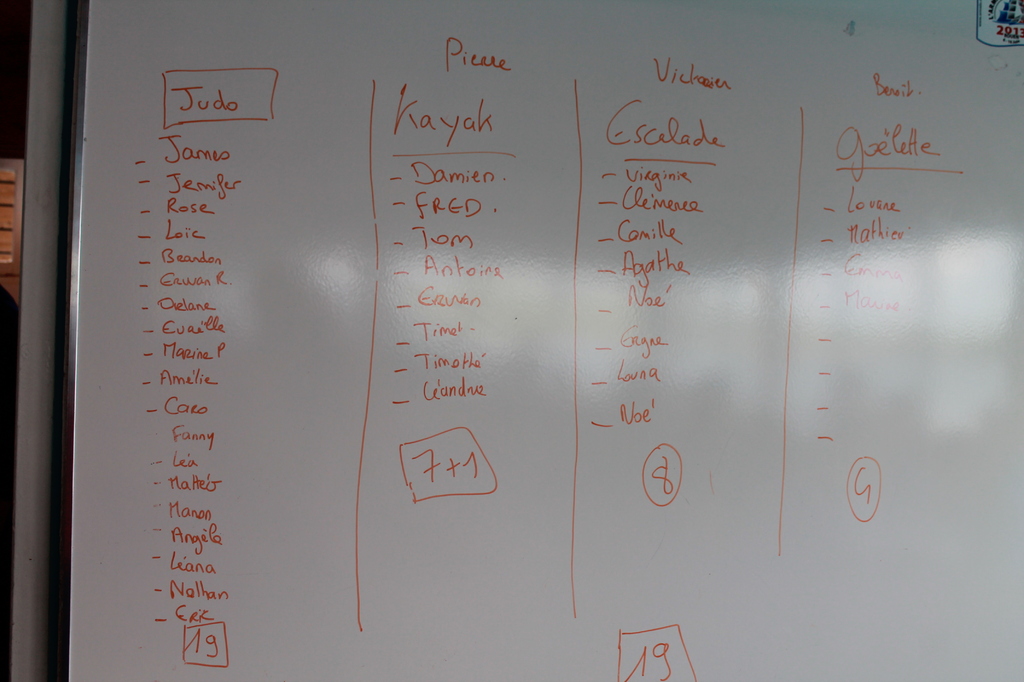 Judo
James
Jennifer
Rose
Loïc
Brandon
Erwan R.
Orlane
Evaëlle
Marine P
Amélie
Caro
Fanny
Léa
Mattéo
Manon
Angèla
Léana
Nathan
Eric
19
Pierre
Kayak
Damien.
FRED.
Tom
Antoine
Erwan
Timet
Timothé
Léandre
7+1
Escalade
Virginie
Clémence
Camille
Agathe
Noé
Louna
Noé
8
19
Benoit.
Goëlette
Louane
Mathieu
Emma
Marine
4
2013